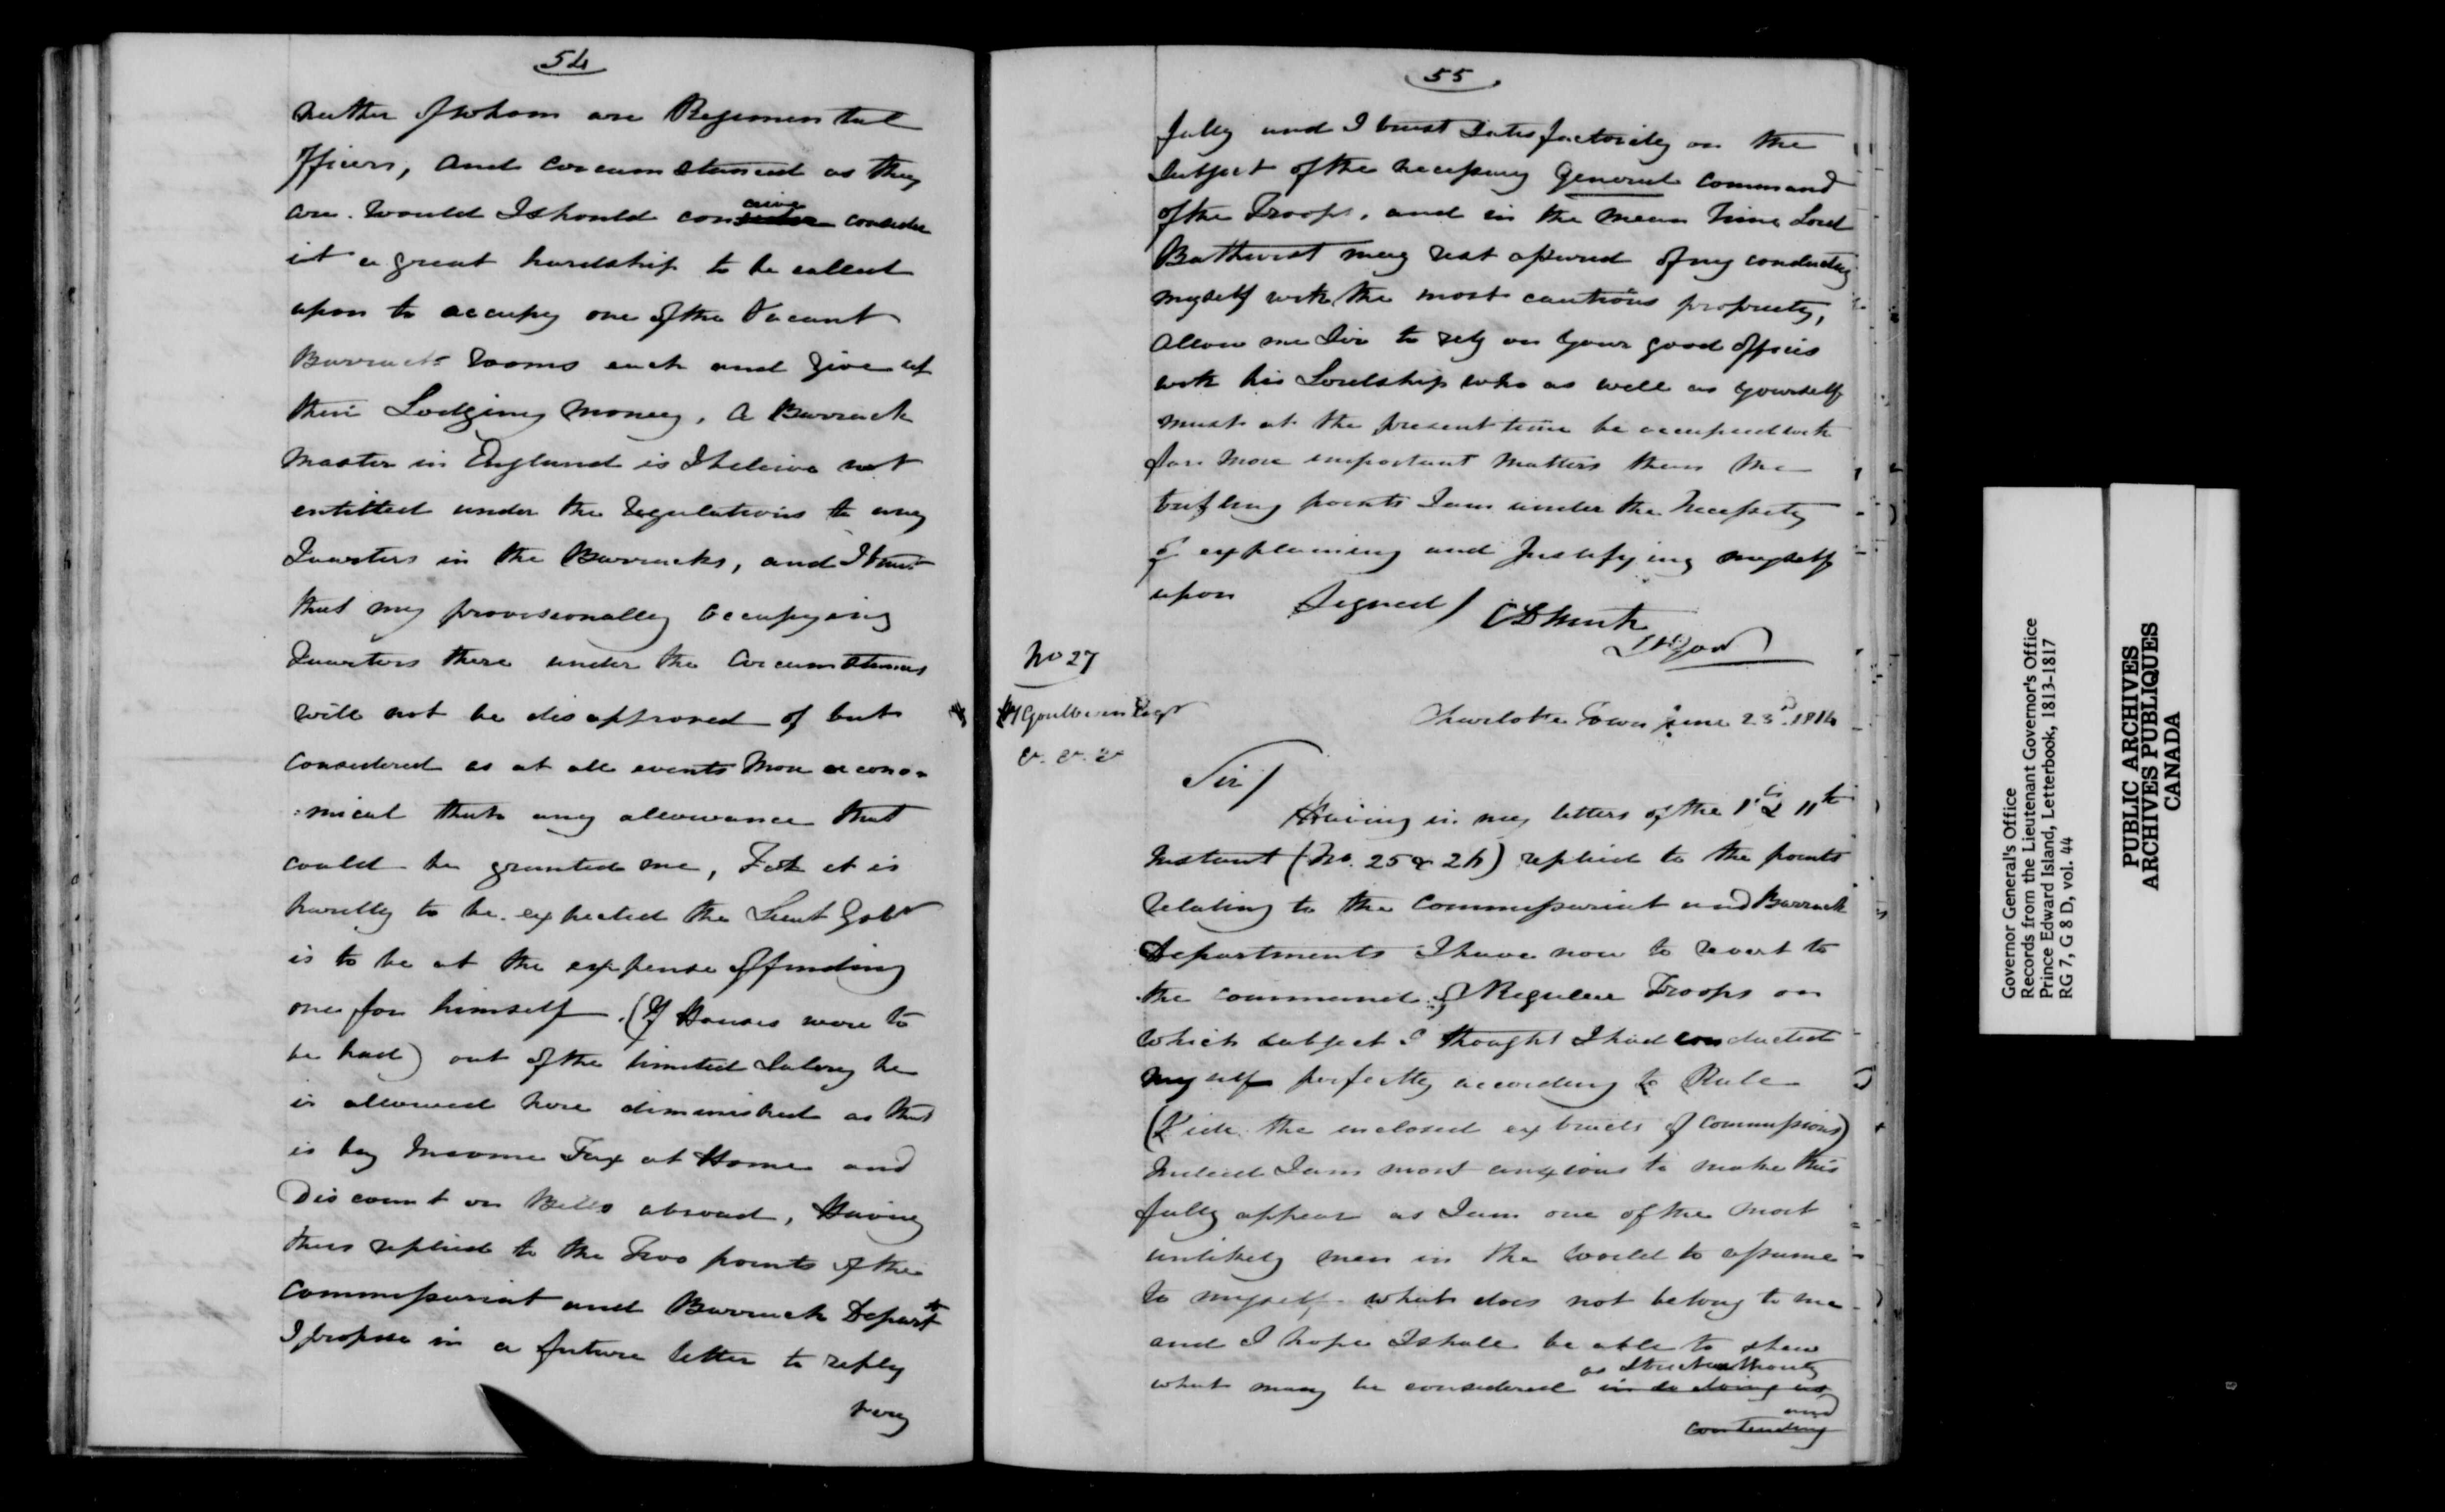 54
neither of whom are Regimental
Officers, and circumstanced as they
are. would I should conceive consider
it a great hardship to be called
upon to occupy one of the Vacant
Barrack rooms each and give up
their Lodging money, a Barrack
master in England is I beleive not
entitled under the regulations to any
Quarters in the Barracks, and I trust
that my provisionally occupying
Quarters there under the Circumstances
will not be disapproved of but
considered as at all events more econo-
:mical than any allowance that
could be granted me, For it is
hardly to be expected the Lieut Govr
is to be at the expense of finding
one for himself. (If Houses were to
be had) out of the limited Salary he
is allowed here diminished as that
is by Income Tax at Home and
Discount on Bills abroad, Having
thus replied to the Two points of the
Commissariat and Barrack Departt
I propose in a future letter to reply
very
55
fully and I trust Satisfactorily on the
Subject of the necessary General command
of the Troops, and in the mean time Lord
Bathurst may rest assured of my conducting
myself with the most cautious propriety,
allow me Sir to rely on your good offices
with his Lordship who as well as yourself
must at the present time be occupied with
far more important matters than the
trifling points I am under the necessity
of explaining and Justifying myself
upon Signed / C D Smith
Lt Gov
No 27
H Goulburn Esqr
&. &. &
Charlotte Town June 23d. 1814
Sir /
Having in my letters of the 1st & 11th
Instant (No. 25 & 26) replied to the points
relating to the Commissariat and Barrack
Departments I have now to revert to
the command of Regular Troops on
which subject I thought I had conducted
myself perfectly according to Rule
(Vide the inclosed extracts of Commissions)
Indeed I am most anxious to make this
fully appear as I am one of the most
unlikely men in the world to assume
to myself what does not belong to me
and I hope I shall be able to shew
as Strict authority
what may be considered in so doing as
and
contending
Governor General's Office
Records from the Lieutenant Governor's Office
Prince Edward Island, Letterbook, 1813-1817
RG 7, G 8 D, vol. 44
PUBLIC ARCHIVES
ARCHIVES PUBLIQUES
CANADA